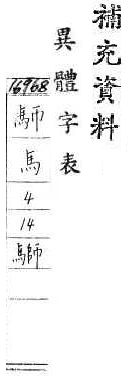 補充資料
異體字表
16968
馬
4
14